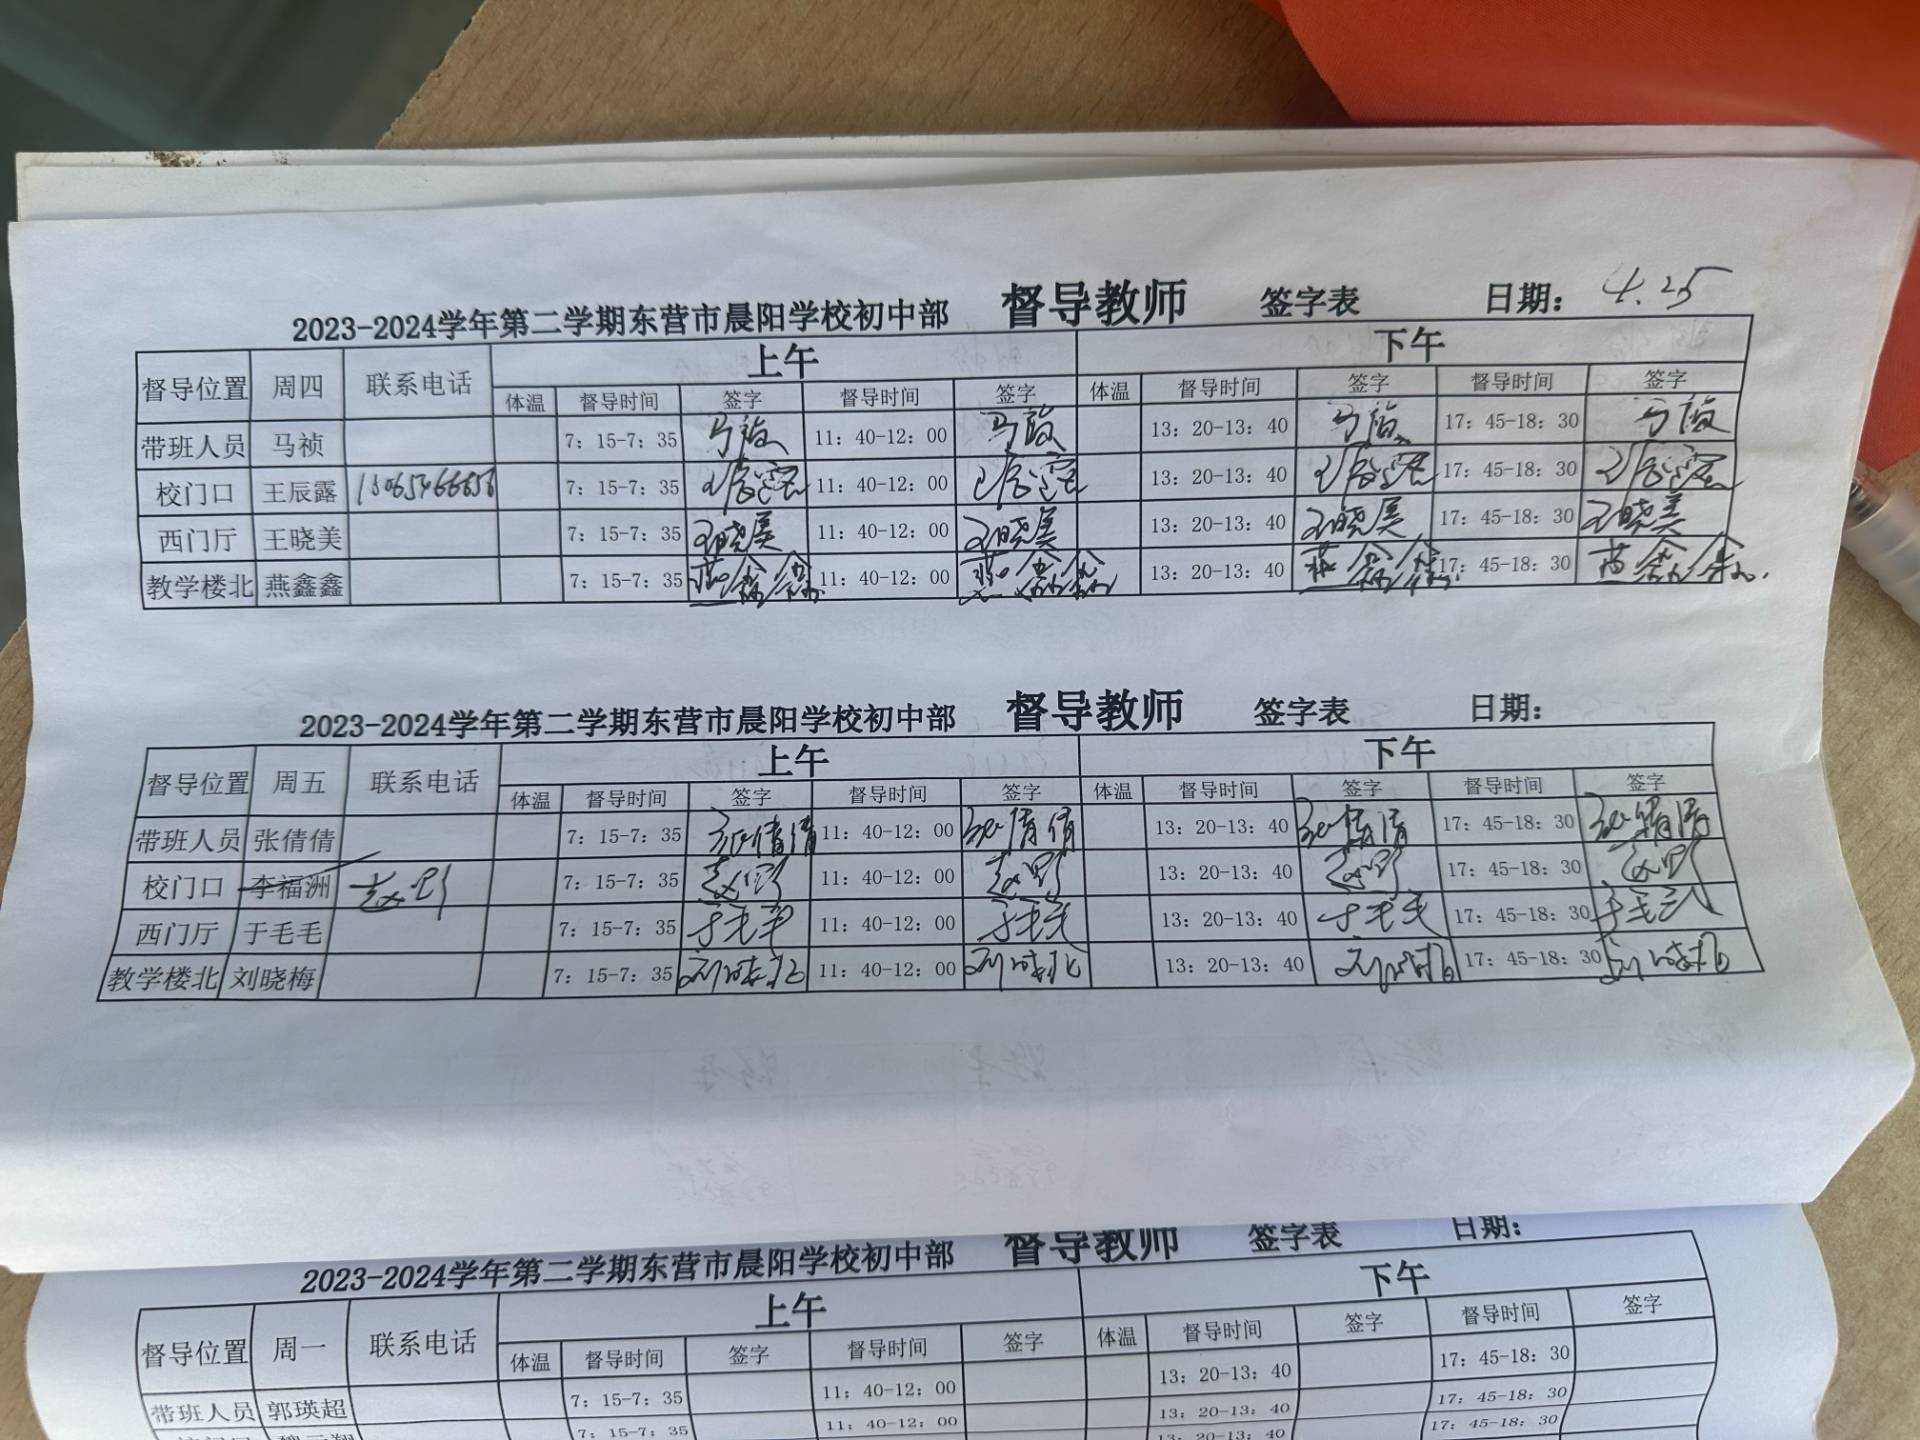 2023-2024学年第二学期东营市晨阳学校初中部 督导教师 签字表 日期： 4.25
督导位置 周四 联系电话 上午 下午
体温 督导时间 签字 督导时间 签字 体温 督导时间 签字 督导时间 签字
带班人员 马祯 7：15-7：35 马祯 11：40-12：00 马祯 13：20-13：40 马祯 17：45-18：30 马祯
校门口 王辰露 7：15-7：35 王辰露 11：40-12：00 王辰露 13：20-13：40 王辰露 17：45-18：30 王辰露
西门厅 王晓美 7：15-7：35 王晓美 11：40-12：00 王晓美 13：20-13：40 王晓美 17：45-18：30 王晓美
教学楼北 燕鑫鑫 7：15-7：35 燕鑫鑫 11：40-12：00 燕鑫鑫 13：20-13：40 燕鑫鑫 17：45-18：30 燕鑫鑫
2023-2024学年第二学期东营市晨阳学校初中部 督导教师 签字表 日期：
督导位置 周五 联系电话 上午 下午
体温 督导时间 签字 督导时间 签字 体温 督导时间 签字 督导时间 签字
带班人员 张倩倩 7：15-7：35 张倩倩 11：40-12：00 张倩倩 13：20-13：40 张倩倩 17：45-18：30 张倩倩
校门口 李福洲 7：15-7：35 11：40-12：00 13：20-13：40 17：45-18：30
西门厅 于毛毛 7：15-7：35 于毛毛 11：40-12：00 于毛毛 13：20-13：40 于毛毛 17：45-18：30 于毛毛
教学楼北 刘晓梅 7：15-7：35 刘晓梅 11：40-12：00 刘晓梅 13：20-13：40 刘晓梅 17：45-18：30 刘晓梅
2023-2024学年第二学期东营市晨阳学校初中部 督导教师 签字表 日期：
督导位置 周一 联系电话 上午 下午
体温 督导时间 签字 督导时间 签字 体温 督导时间 签字 督导时间 签字
带班人员 郭瑛超 7：15-7：35 11：40-12：00 13：20-13：40 17：45-18：30
7：15-7：35 11：40-12：00 13：20-13：40 17：45-18：30
17：45-18：30